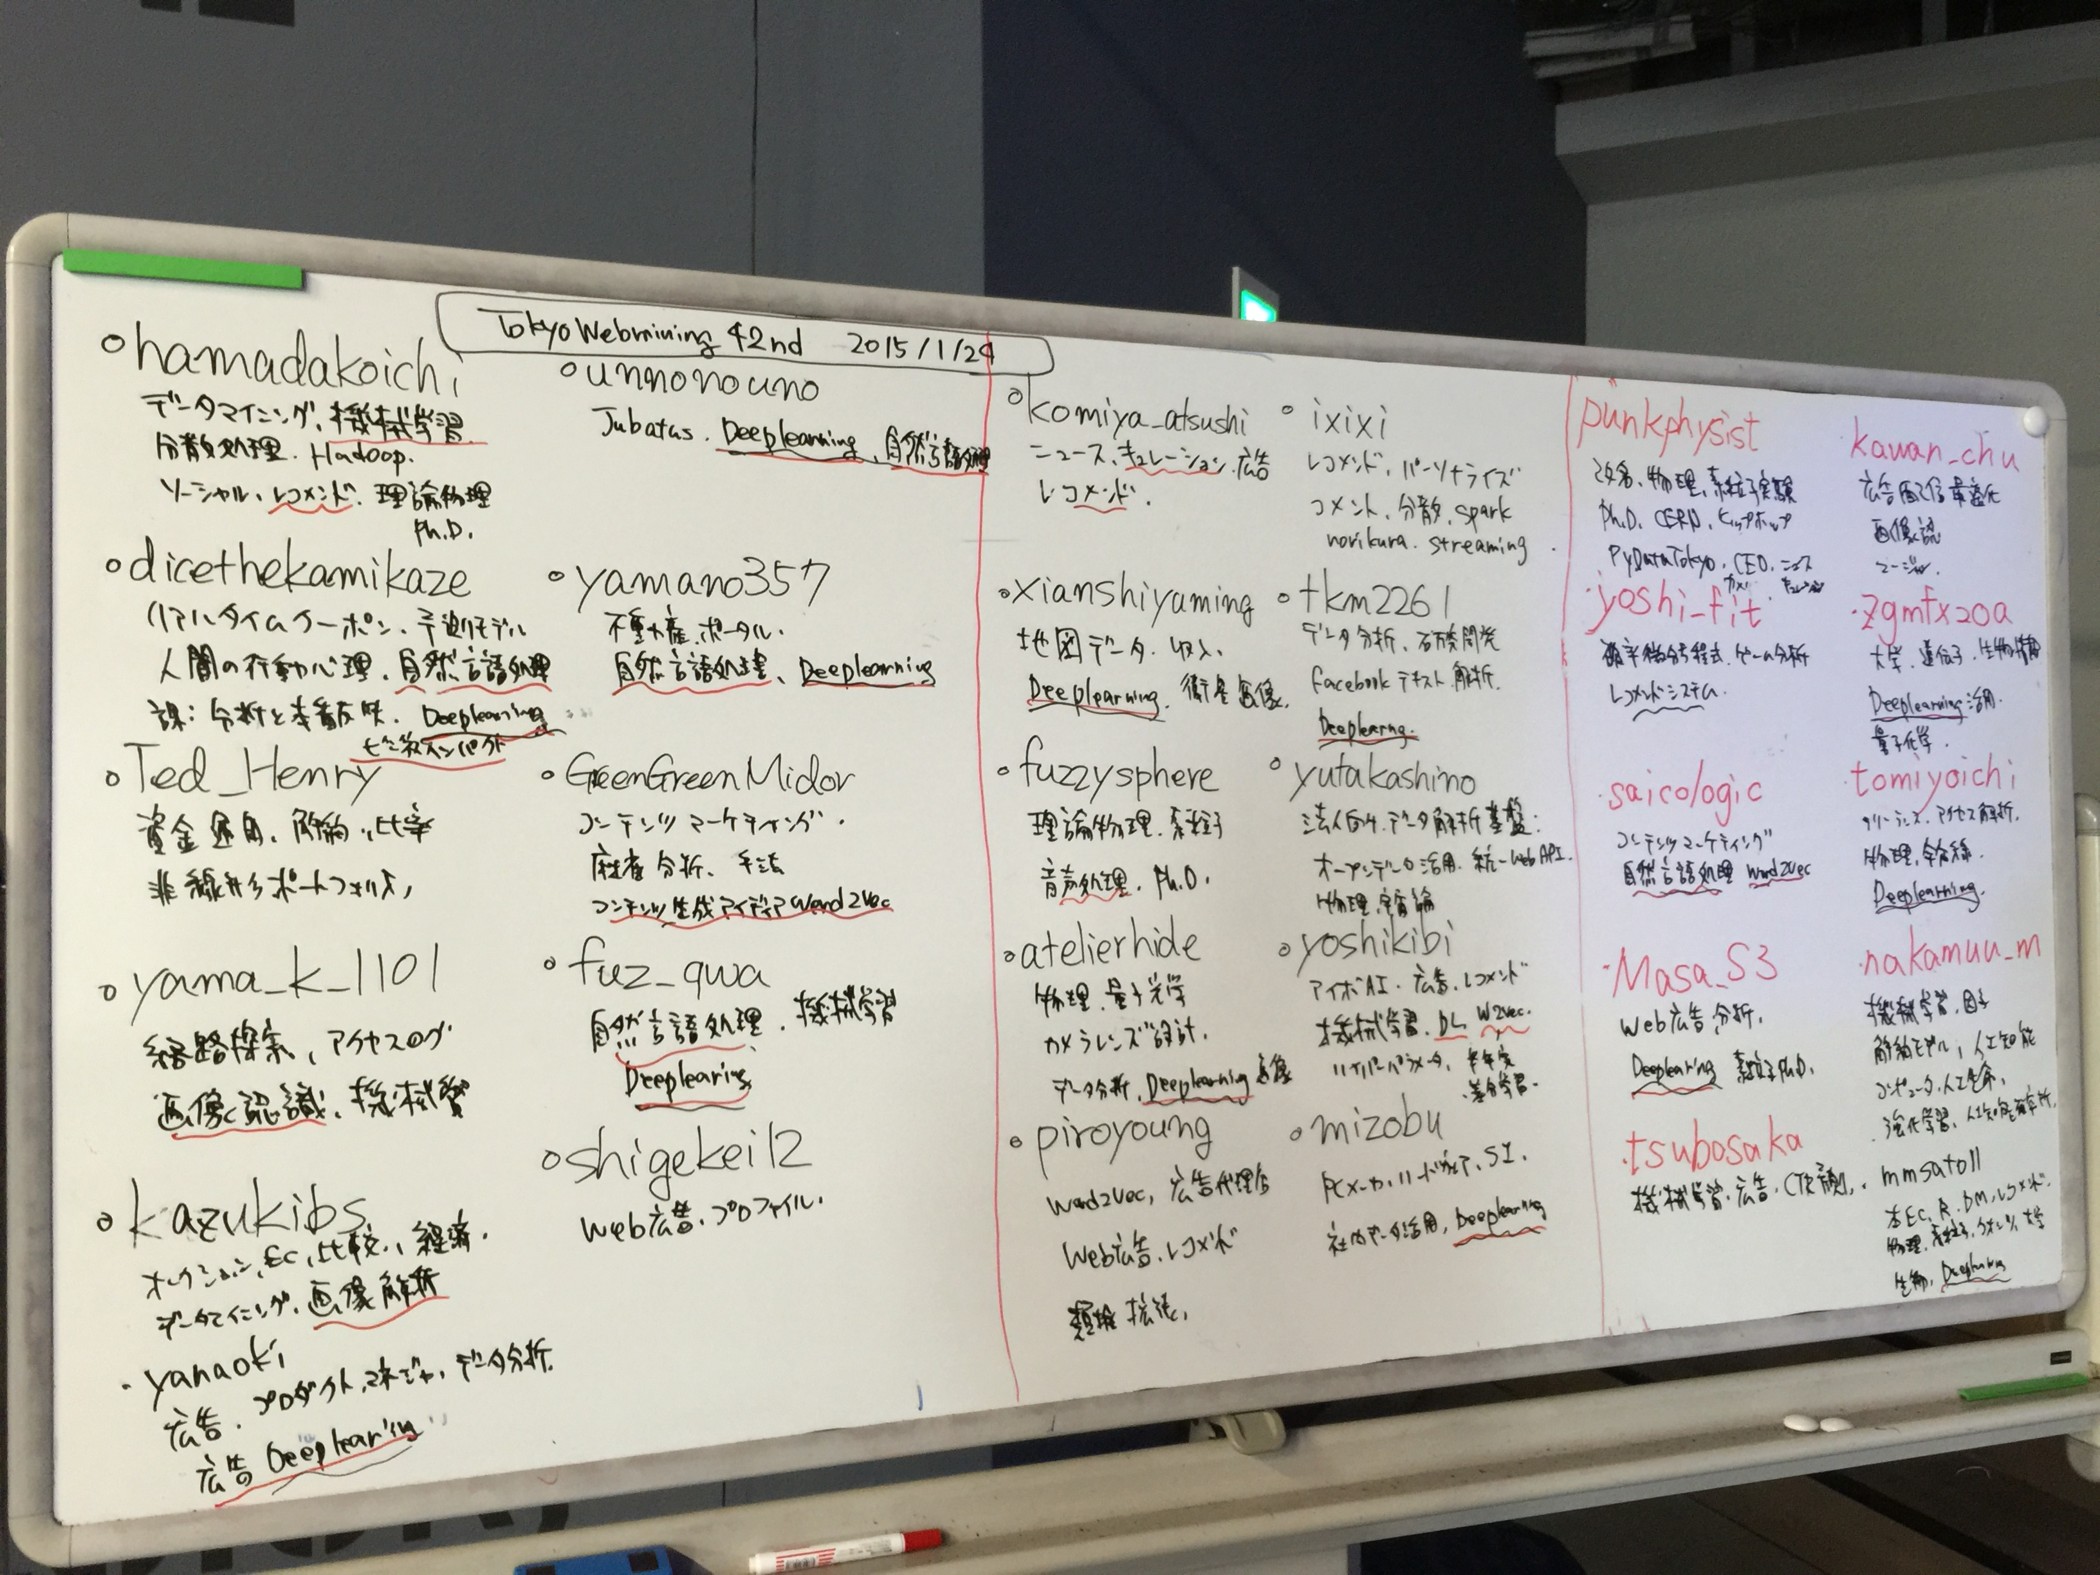 TokyoWebmining 42nd 2015/1/24
hamadakoichi
データマイニング、機械学習
分散処理. Hadoop.
ソーシャル、レコメンド. 理論物理
Ph.D.
dicethekamikaze
リアルタイムクーポン、予測モデル
人間の行動心理、自然言語処理
課: 分析と本番反映. Deeplearning
ビジネスインパクト
Ted_Henry
資金運用、解約、比率
非線形ポートフォリオ,
yama_k_1101
経路探索, アクセスログ
画像認識、機械学習
kazukibs
オークション, EC, 比較, 経済.
データマイニング、画像解析
yanaoki
プロダクトマネジャ, データ分析.
広告.
広告 Deeplearing
unnonouno
Jubatus. Deeplearning, 自然言語処理
yamano357
不動産ポータル.
自然言語処理、Deeplearning
GreenGreenMidor
コンテンツマーケティング.
分析、手法
コンテンツ生成アイディア Word2Vec
fuz_qwa
自然言語処理. 機械学習
Deeplearing
shigekei12
Web広告. プロファイル.
komiya_atsushi
ニュース、キュレーション. 広告
レコメンド.
xianshiyaming
地図データ. 収入.
Deeplearning. 衛星画像.
fuzzysphere
理論物理. 素粒子
音声処理. Ph.D.
atelierhide
物理. 量子光学
カメラレンズ設計.
データ分析, Deeplearning 画像
piroyoung
Word2Vec, 広告代理店
Web広告. レコメンド
類推 拡張,
ixixi
レコメンド. パーソナライズ
コメント. 分散. spark
norikura. streaming.
tkm2261
データ分析. 研究開発
facebook テキスト解析.
Deeplearng.
yutakashino
法人向け. データ解析基盤.
オープンデータ活用. 統一Web API.
物理. 宇宙論
yoshikibi
アイボAI. 広告. レコメンド
機械学習. DL W2Vec.
ハイパーパラメータ,
mizobu
PCメーカ. ハードウェア. SI.
社内データ活用, Deeplearning
punkphysist
改名、物理、素粒子実験
Ph.D. CERN. ヒップホップ
PyDataTokyo. CEO. ニュース
キュレーション
yoshi_fit
確率微分方程式. ゲーム分析
レコメンドシステム.
saicologic
コンテンツマーケティング
自然言語処理 Word2Vec
Masa_S3
Web広告分析.
Deeplearing 素粒子Ph.D.
tsubosaka
機械学習. 広告. CTR予測.
kawan_chu
広告配信最適化
画像認
zgmfx20a
大学. 遺伝子. 生物情報
Deeplearning活用.
量子化学.
tomiyoichi
フリーランス. アクセス解析.
物理,
Deeplearning.
nakamuu_m
機械学習. 因子
解約モデル, 人工知能
コンピュータ. 人工生命,
強化学習. 人工知能研究所.
mmsato11
本EC. R. DM. レコメンド.
物理. 素粒子. クオンツ. 大学
生物. Deeplearning